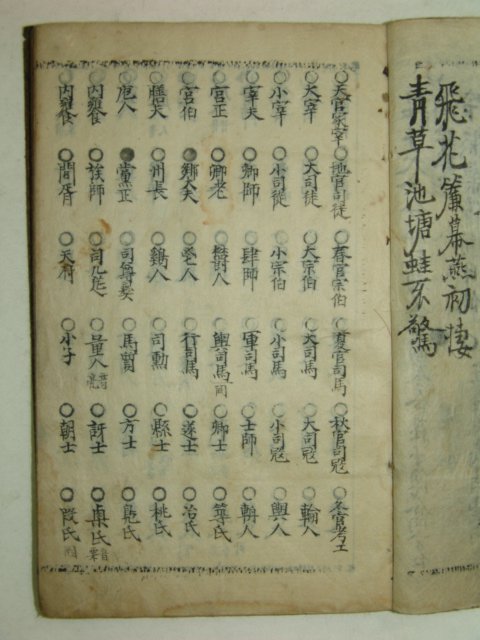 飛花簾幕燕初棲
青草池塘蛙不驚
天官冢宰 地官司徒 春官宗伯 夏官司馬 秋官司寇 冬官考工
大宰 大司徒 大宗伯 大司馬 大司寇 輪人
小宰 小司徒 小宗伯 小司馬 小司寇 輿人
宰夫 鄉師 肆師 軍司馬 士師 輈人
宮正 鄉老 鬱人 輿司馬 鄉士 築氏
宮伯 鄉大夫 鬯人 行司馬 遂士 冶氏
膳夫 州長 鷄人 司勳 縣士 桃氏
庖人 黨正 司尊彝 馬質 方士 鳧氏
內饔 族師 司几筵 量人 訝士 㮚氏
內饔 閭胥 天府 小子 朝士 段氏